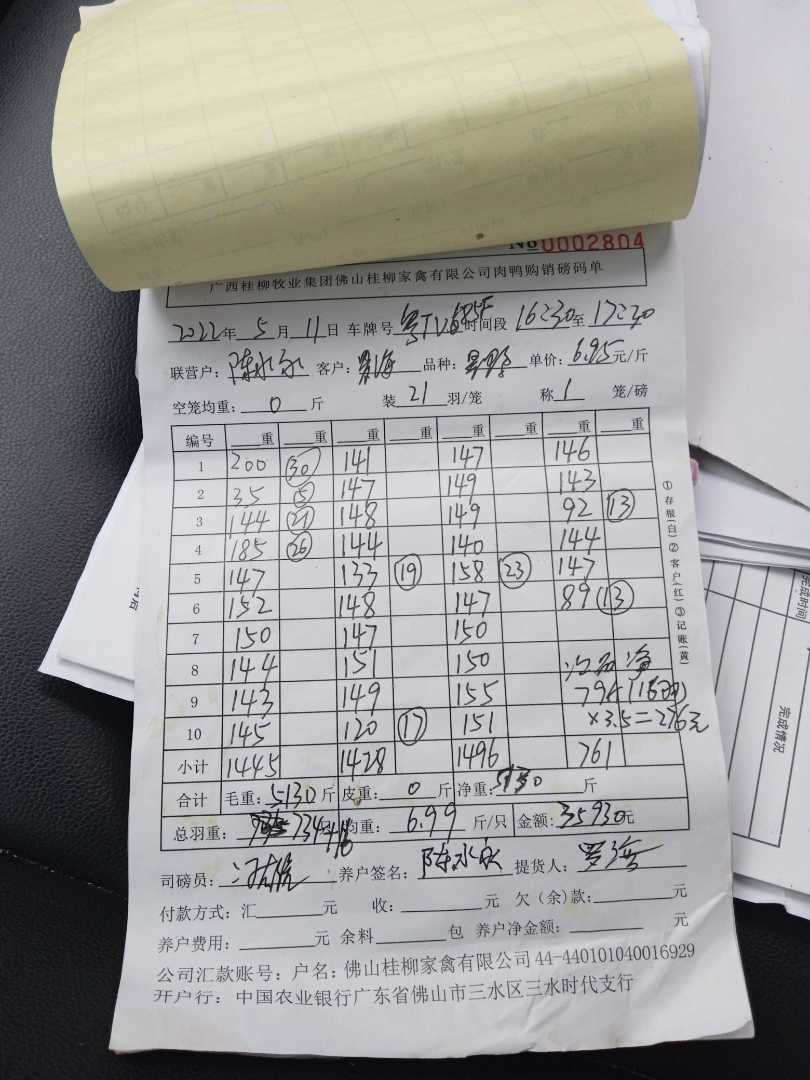 No 0002804
广西桂柳牧业集团佛山桂柳家禽有限公司肉鸭购销磅码单
2022年 5月 11日 车牌号 粤TV685F 时间段 16:30至 17:30
联营户: 陈水永 客户: 罗海 品种: 单价: 6.95元/斤
空笼均重: 0 斤 装 21 羽/笼 称 1 笼/磅
编号 重 重 重 重 重 重 重 重
1 200 30 141 147 146
2 35 5 147 149 143
3 144 21 148 149 92 13
4 185 26 144 140 144
5 147 133 19 158 23 147
6 152 148 147 89 13
7 150 147 150
8 144 151 150
9 143 149 155 79斤(16羽)
10 145 120 17 151 ×3.5=276元
小计 1445 1428 1496 761
合计 毛重: 5130 斤 皮重: 0 斤 净重: 5130 斤
总羽重: 734+16 均重: 6.99 斤/只 金额: 35930元
司磅员: 养户签名: 陈水永 提货人: 罗海
付款方式: 汇 元 收: 元 欠(余)款: 元
养户费用: 元 余料 包 养户净金额: 元
公司汇款账号: 户名: 佛山桂柳家禽有限公司 44-440101040016929
开户行: 中国农业银行广东省佛山市三水区三水时代支行
①存根(白)②客户(红)③记账(黄)
完成时间
完成情况